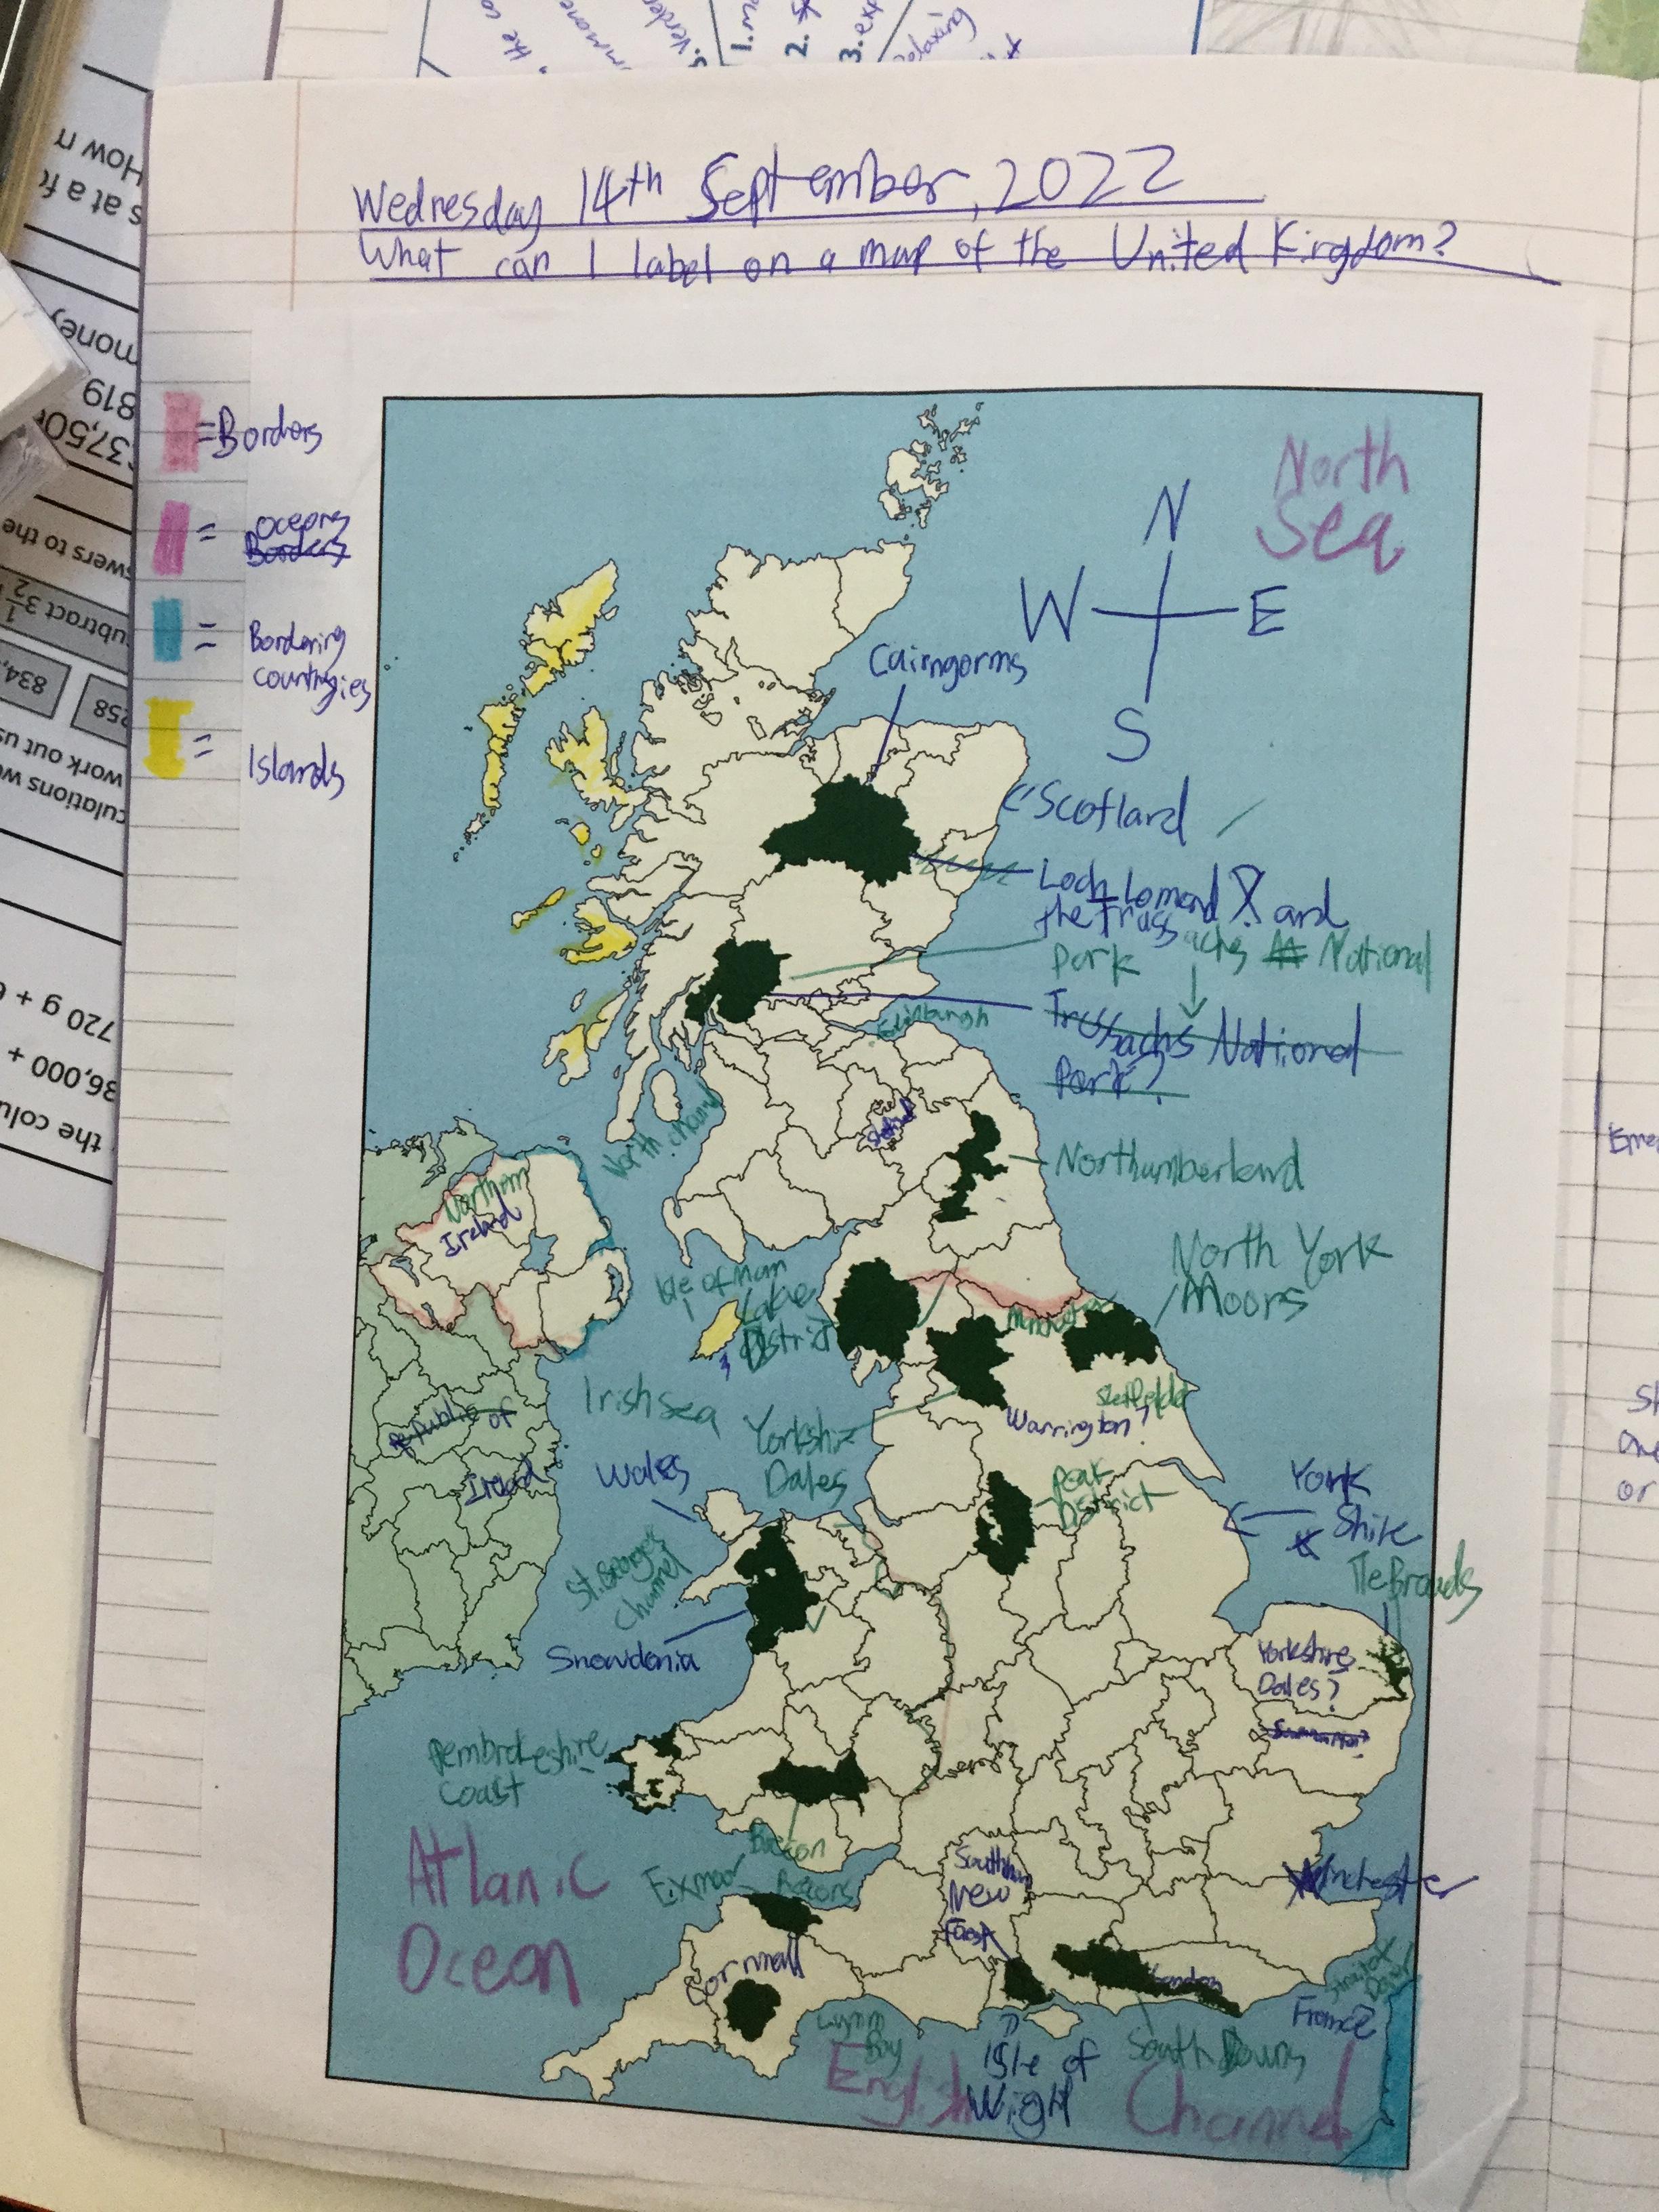 Wednesday 14th September, 2022
What can I label on a map of the United Kingdom?
= Borders
= oceans
Borders
= Bordering
countrygies
= Islands
North
Sea
N
W E
S
Cairngorms
Scotland
Loch Lomond & and
the Truss achs National
Park
Trussachs National
Park?
Edinburgh
North channel
Northumberland
Northern
Ireland
North York
Moors
Isle of Man
Lake
District
Manchester
Irish Sea
Sheffield
Warrington?
Yorkshire
Dales
republic of
Ireland
Wales
Peak
District
York
Shire
The Broads
St. Georges
Channel
Snowdonia
Yorkshire
Dales?
Pembrokeshire
Coast
Brecon
Becons
Exmoor
Atlanic
Ocean
New
Forest
Winchester
Cornwall
London
Strait of
Dover
France
Lynm
Bay
Isle of
Wight
South Downs
English Channel
How
s at a fo
money
819
37,50
wers to the
ubtract 3 1/2
834,
258
work out us
culations w
720 g +
36,000 +
the colu
1.
2.
3. ex
relaxing
the co